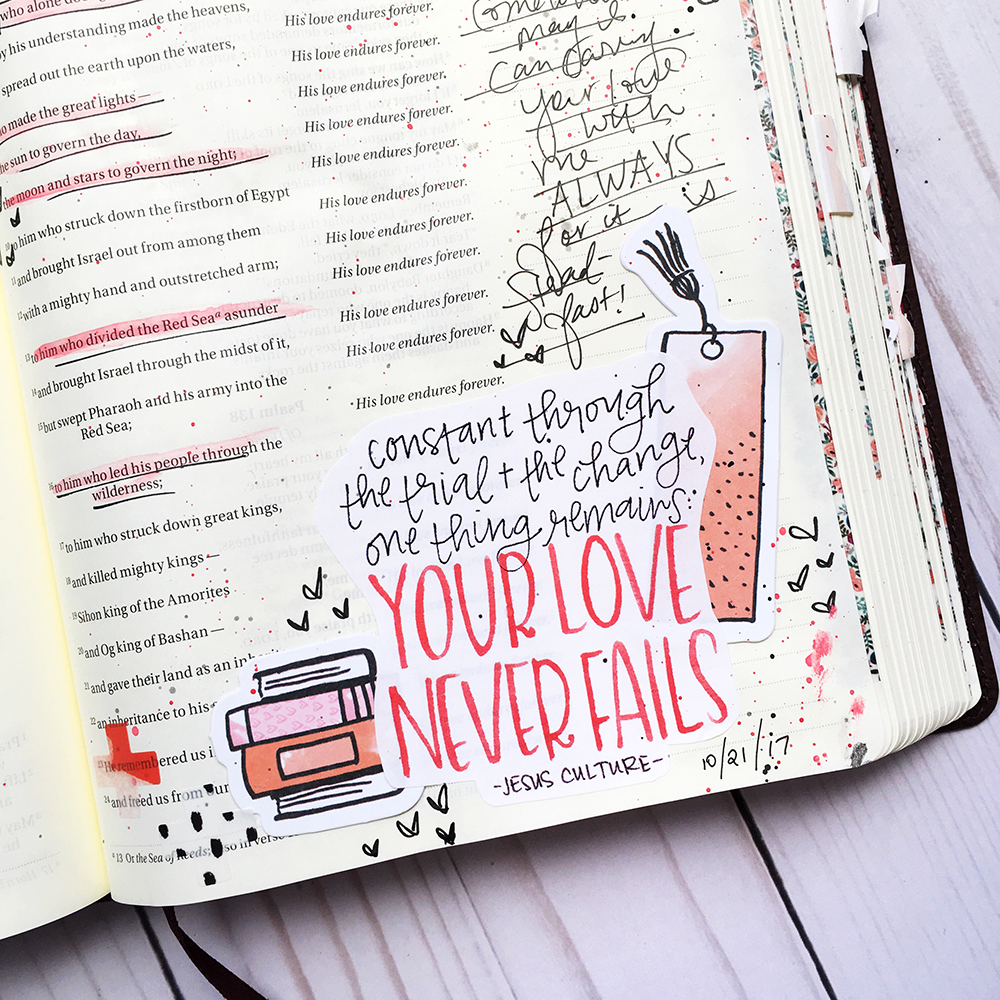 who alone does
by his understanding made the heavens,
His love endures forever.
spread out the earth upon the waters,
His love endures forever.
made the great lights —
His love endures forever.
the sun to govern the day,
His love endures forever.
the moon and stars to govern the night;
His love endures forever.
10 to him who struck down the firstborn of Egypt
His love endures forever.
11 and brought Israel out from among them
His love endures forever.
12 with a mighty hand and outstretched arm;
His love endures forever.
13 to him who divided the Red Seaᵃ asunder
His love endures forever.
14 and brought Israel through the midst of it,
His love endures forever.
15 but swept Pharaoh and his army into the
Red Sea;
His love endures forever.
16 to him who led his people through the
wilderness;
17 to him who struck down great kings,
18 and killed mighty kings —
19 Sihon king of the Amorites
20 and Og king of Bashan —
21 and gave their land as an
22 an inheritance to his
23 He remembered us
24 and freed us from our
ᵃ 13 Or the Sea of Reeds; so in verse
may I
can carry
your love
with
me
ALWAYS
for it is
Stead-
fast!
constant through
the trial + the change,
one thing remains:
YOUR LOVE
NEVER FAILS
-JESUS CULTURE-
10/21/17